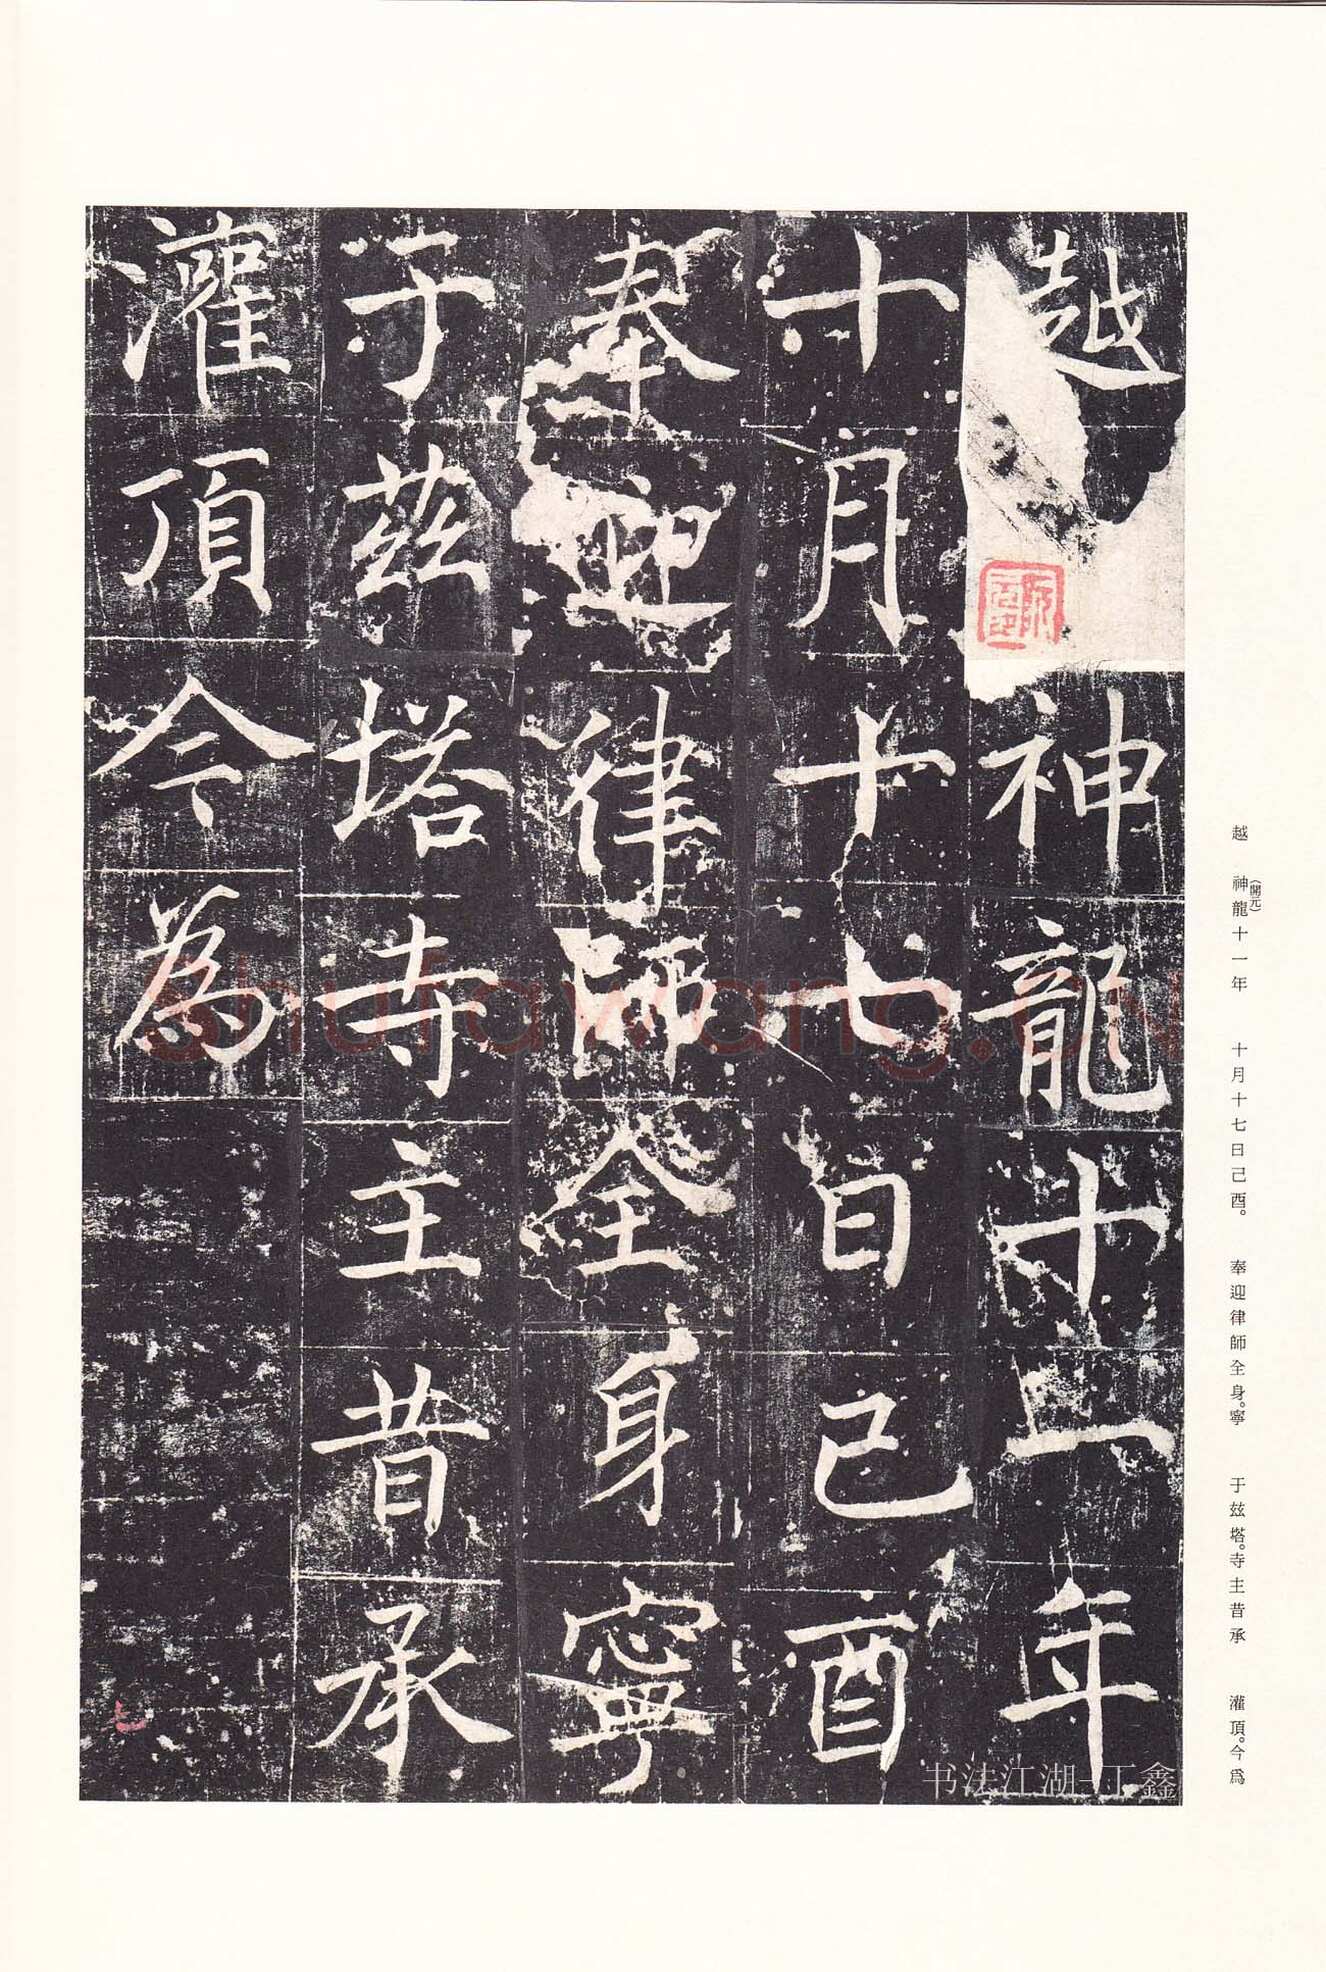 越神龍十一年
十月十七日己酉
奉迎律師全身寧
于茲塔寺主昔承
灌頂今為
越　神龍十一年　十月十七日己酉。　奉迎律師全身。寧　于玆塔。寺主昔承　灌頂。今爲
(開元)
shufawang.CN
书法江湖-丁鑫